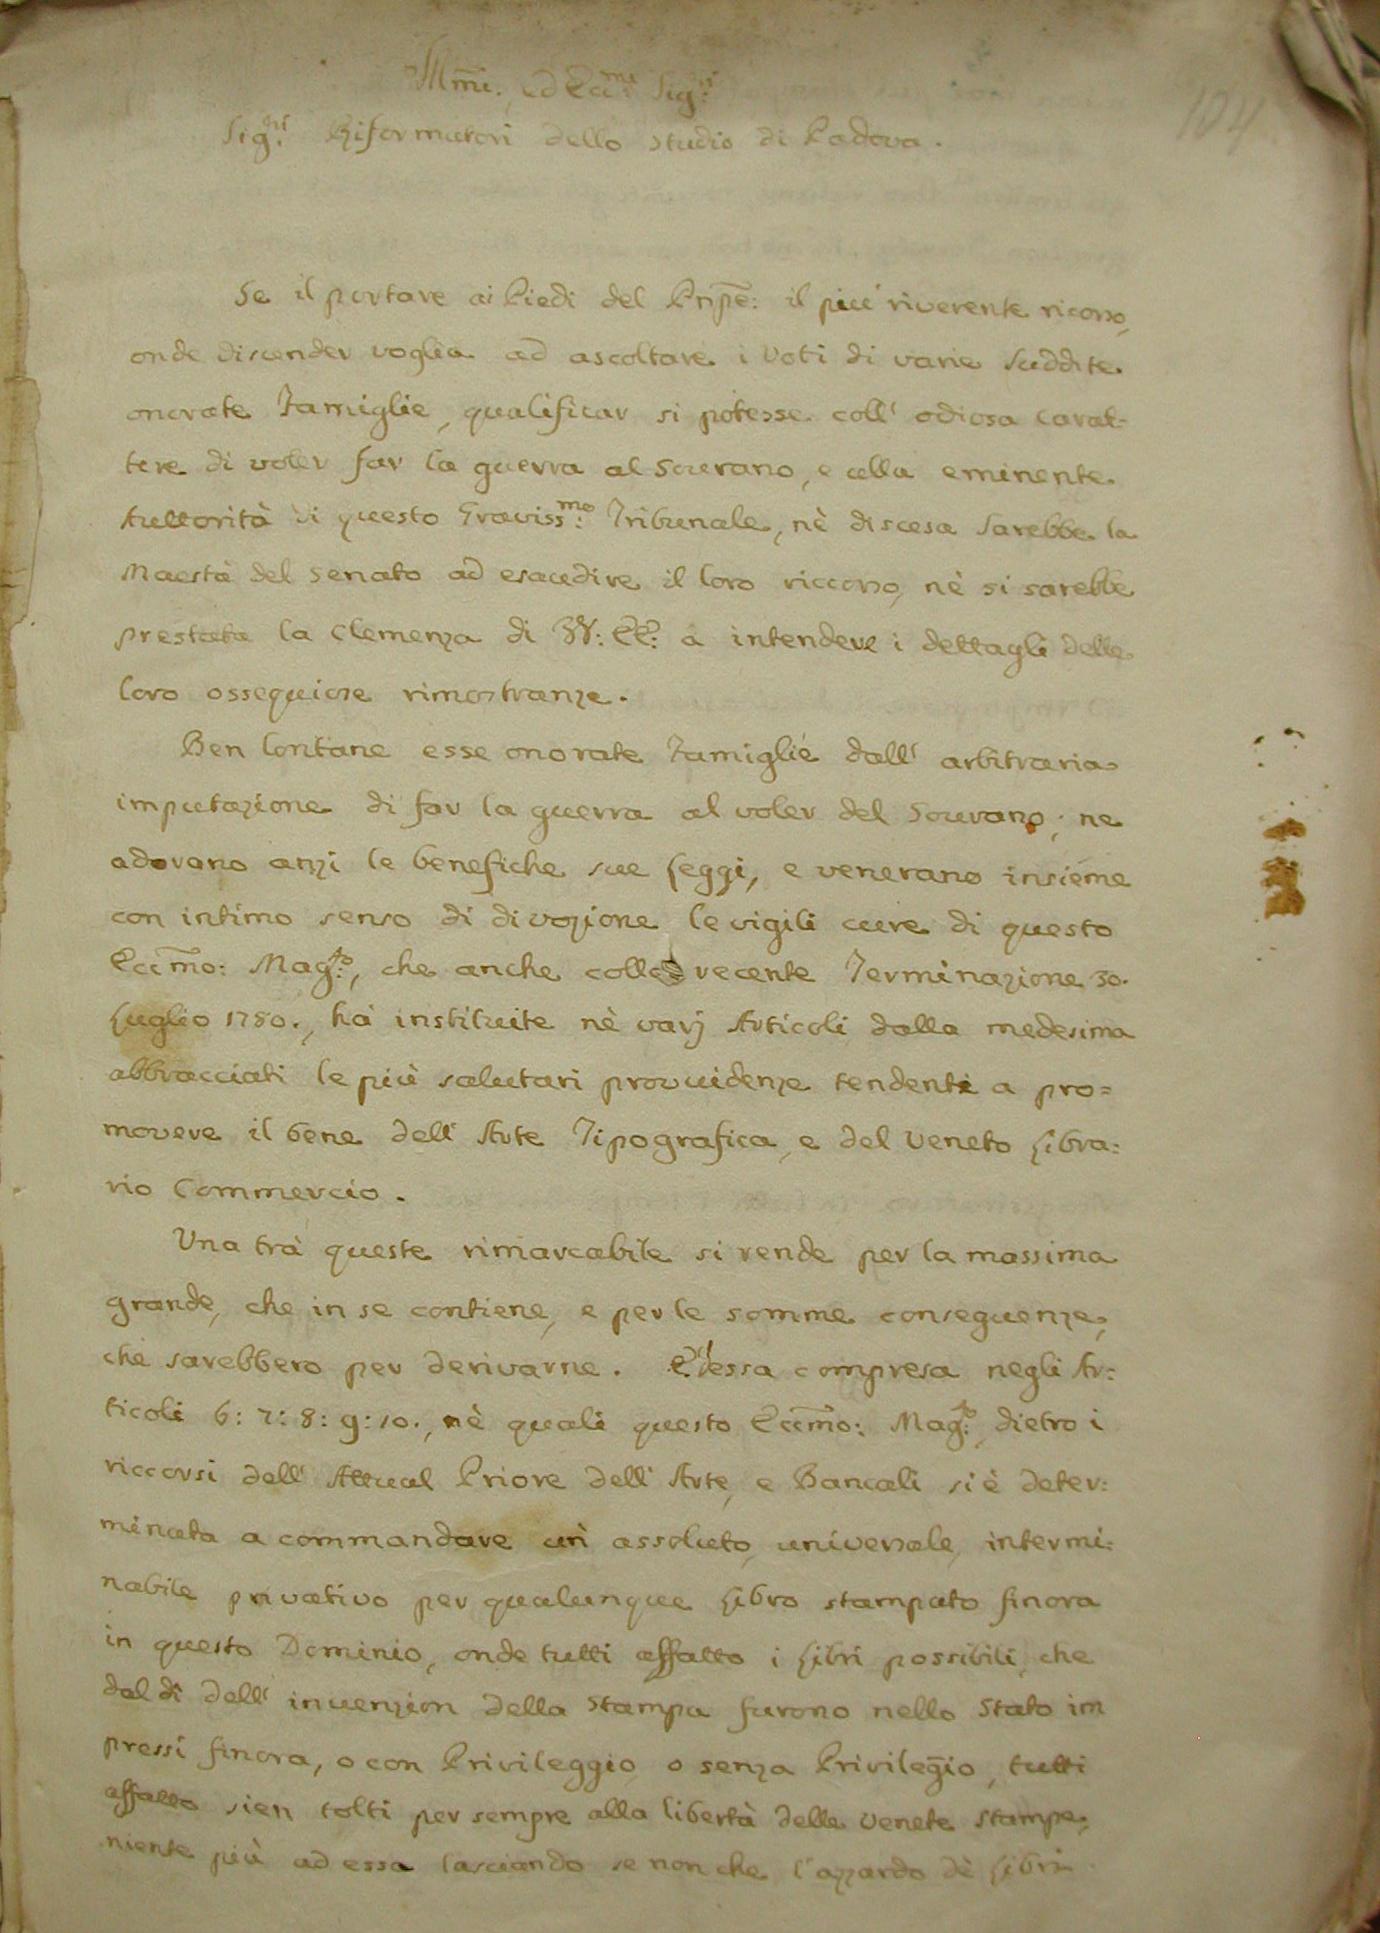 Ill:mi, ed Ecc:mi Sig:ri
104
Sig:ri Riformatori dello Studio di Padova.
Se il portare ai Piedi del Pnpe: il più riverente ricorso,
onde discender voglia ad ascoltare i Voti di varie Suddite
onorate Famiglie, qualificar si potesse coll' odiosa Carat-
tere di voler far la guerra al Sovrano, e alla eminente
Auttorità di questo Graviss:mo Tribunale, nè discesa Sarebbe la
Maestà del Senato ad esaudire il loro riccorso, nè si sarebbe
prestata la Clemenza di VV: EE: a intendere i dettagli delle
loro ossequiose rimostranze.
Ben lontane esse onorate Famiglie dall' arbitraria
imputazione di far la guerra al voler del Sovrano; ne
adorano anzi le benefiche sue Leggi, e venerano insieme
con intimo senso di divozione le vigili cure di questo
Eccmo: Mag:to, che anche colle recente Terminazione 30.
Luglio 1780., hà instituite nè varj Articoli dalla medesima
abbracciati le più salutari provvidenze tendenti a pro=
movere il bene dell' Arte Tipografica, e del Veneto Libra:
rio Commercio.
Una trà queste rimarcabile si rende per la massima
grande, che in se contiene, e per le somme conseguenze,
che sarebbero per derivarne. Ed essa compresa negli Ar:
ticoli 6: 7: 8: 9: 10., nè quali questo Eccmo: Mag:to, dietro i
riccorsi dell' Attual Priore dell' Arte, e Bancali si è deter:
minata a commandare un assoluto, universale, intermi:
nabile privativo per qualunque Libro stampato finora
in questo Dominio, onde tutti affatto i Libri possibili, che
dal dì dell' invenzion della Stampa furono nello Stato im
pressi finora, o con Privileggio, o senza Privilegio, tutti
affatto sien tolti per sempre alla libertà delle Venete Stampe,
niente più ad essa lasciando se non che l'azzardo dè Libri